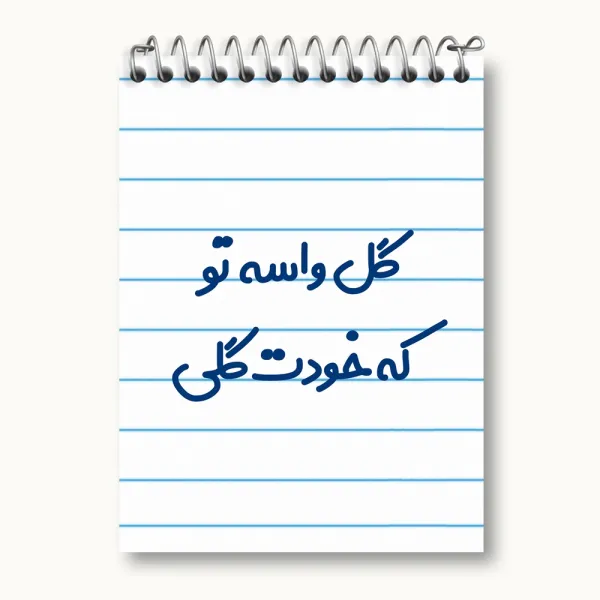 گل واسه تو
که خودت گلی